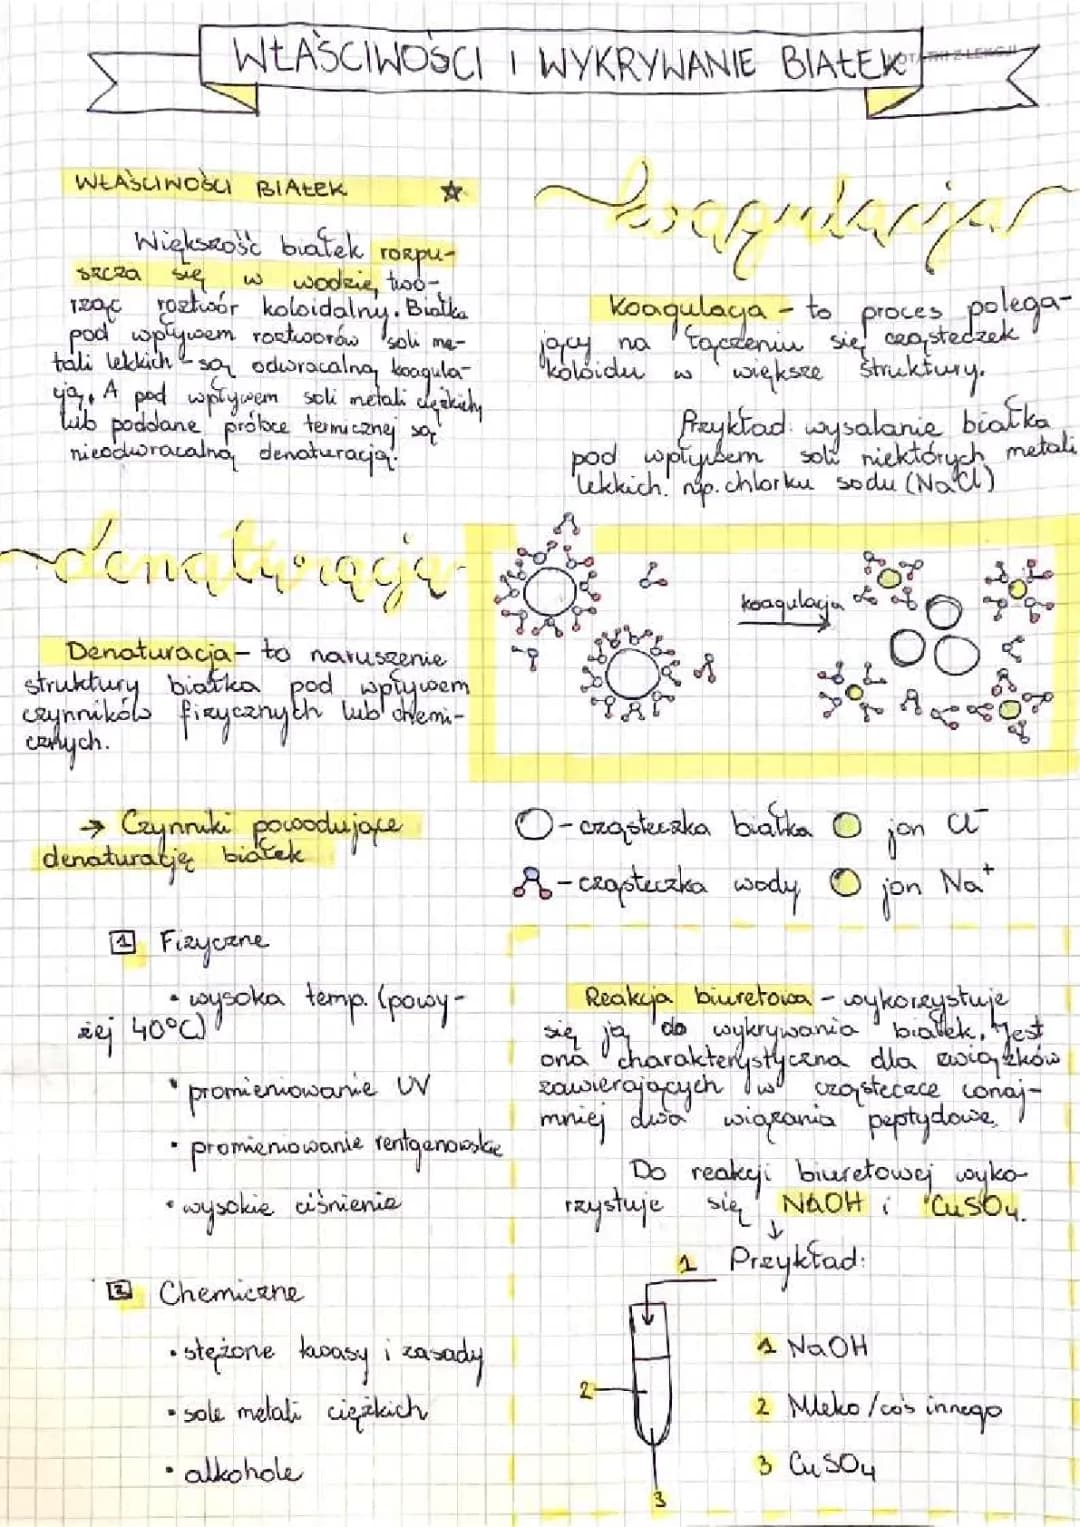 WŁAŚCIWOŚCI I WYKRYWANIE BIAŁEK
WŁAŚCIWOŚCI BIAŁEK
Większość białek rozpu-
szcza się w wodzie, two-
rząc roztwór koloidalny. Białka
pod wpływem roztworów soli me-
tali lekkich - są odwracalną koagula-
cją. A pod wpływem soli metali ciężkich
lub poddane próbce termicznej są
nieodwracalną denaturacją.
denaturacja
Denaturacja - to naruszenie
struktury białka pod wpływem
czynników fizycznych lub chemi-
cznych.
→ Czynniki powodujące
denaturację białek
1 Fizyczne
• wysoka temp. (powy-
żej 40°C)
• promieniowanie UV
• promieniowanie rentgenowskie
• wysokie ciśnienie
2 Chemiczne
• stężone kwasy i zasady
• sole metali ciężkich
• alkohole
koagulacja
Koagulacja - to proces polega-
jący na łączeniu się cząsteczek
koloidu w większe struktury.
Przykład: wysalanie białka
pod wpływem soli niektórych metali
lekkich. np. chlorku sodu (NaCl)
koagulacja
- cząsteczka białka
jon Cl⁻
- cząsteczka wody
jon Na⁺
Reakcja biuretowa - wykorzystuje
się ją do wykrywania białek. Jest
ona charakterystyczna dla związków
zawierających w cząsteczce conaj-
mniej dwa wiązania peptydowe.
Do reakcji biuretowej wyko-
rzystuje się NaOH i CuSO₄.
↓
Przykład:
1
2
3
1 NaOH
2 Mleko/coś innego
3 CuSO₄